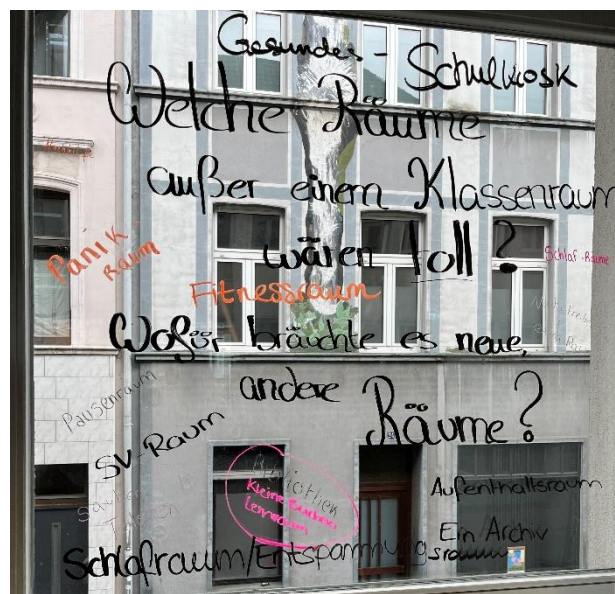 Gesundes - Schulkiosk
Welche Räume
außer einem Klassenraum
wären toll?
Panik
Raum
Schlaf-Räume
Fitnessraum
Wofür bräuchte es neue,
andere Räume?
Pausenraum
SV-Raum
Bibliothek
Kleine Bücherei
Lernraum
Aufenthaltsraum
Ein Archiv
Schlafraum/Entspannungsraum